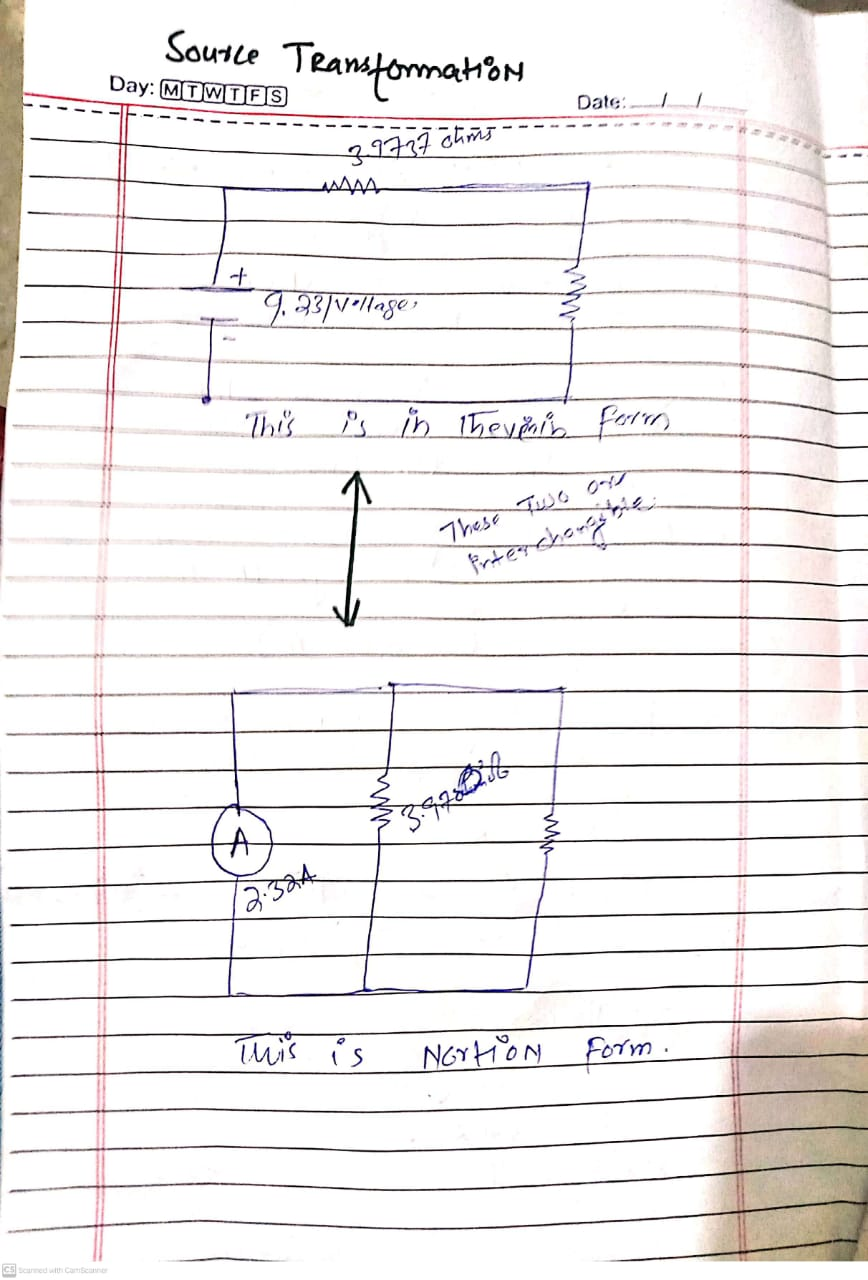 Source Transformation
Day: M T W T F S
Date: / /
3.9737 ohms
+
9.23/Voltage,
-
This is in Thevenin form
These Two are
interchangible.
A
2.32A
This is Nortion Form.
CS Scanned with CamScanner